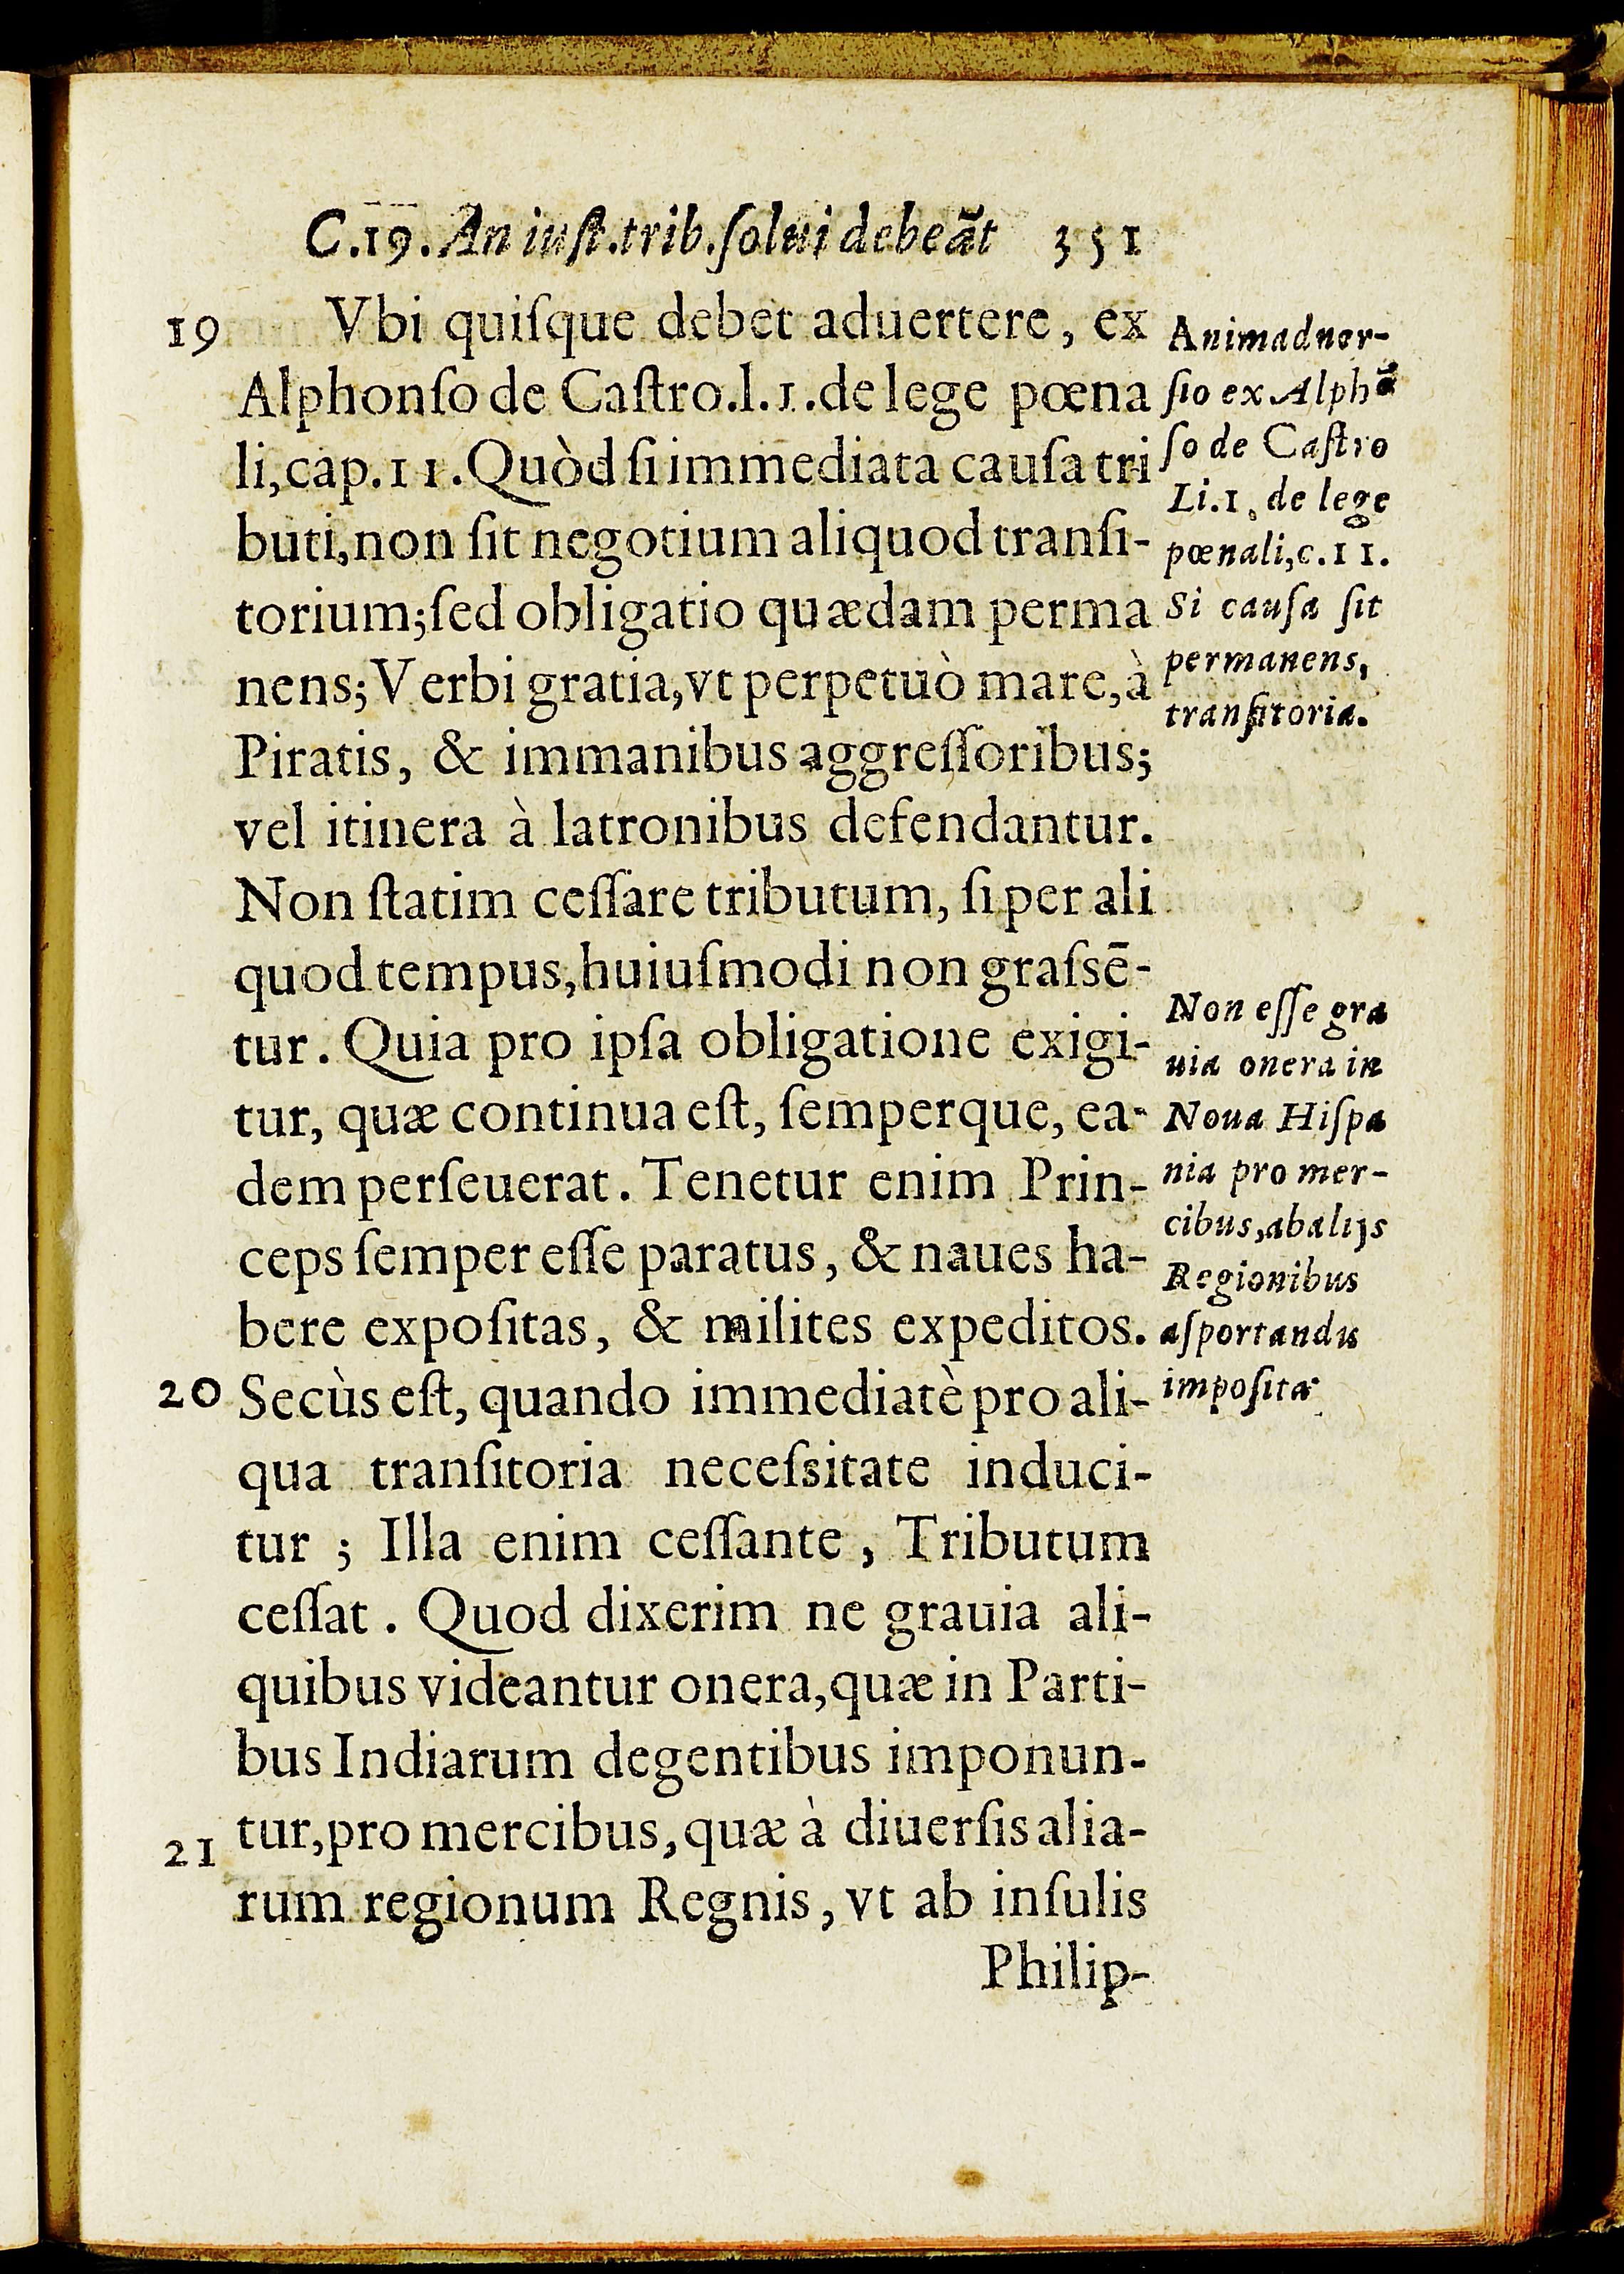 C.19. An iuſt.trib.ſolui debeãt 351
19 Vbi quiſque debet aduertere, ex
Alphonſo de Caſtro.l.1.de lege pœna
li,cap.11.Quòd ſi immediata cauſa tri
buti,non ſit negotium aliquod tranſi-
torium;ſed obligatio quædam perma
nens; Verbi gratia,vt perpetuò mare,à
Piratis, & immanibus aggreſſoribus;
vel itinera à latronibus defendantur.
Non ſtatim ceſſare tributum, ſi per ali
quod tempus,huiuſmodi non graſsē-
tur. Quia pro ipſa obligatione exigi-
tur, quæ continua eſt, ſemperque, ea-
dem perſeuerat. Tenetur enim Prin-
ceps ſemper eſſe paratus, & naues ha-
bere expoſitas, & milites expeditos.
20 Secùs eſt, quando immediatè pro ali-
qua tranſitoria neceſsitate induci-
tur ; Illa enim ceſſante, Tributum
ceſſat. Quod dixerim ne grauia ali-
quibus videantur onera,quæ in Parti-
bus Indiarum degentibus imponun-
21 tur,pro mercibus,quæ à diuerſis alia-
rum regionum Regnis, vt ab inſulis
Philip-
Animaduer-
ſio ex Alphõ
ſo de Caſtro
Li.1. de lege
pœnali,c.11.
Si cauſa ſit
permanens,
tranſitoria.
Non eſſe gra
uia onera in
Noua Hiſpa
nia pro mer-
cibus,ab alijs
Regionibus
aſportandis
impoſita